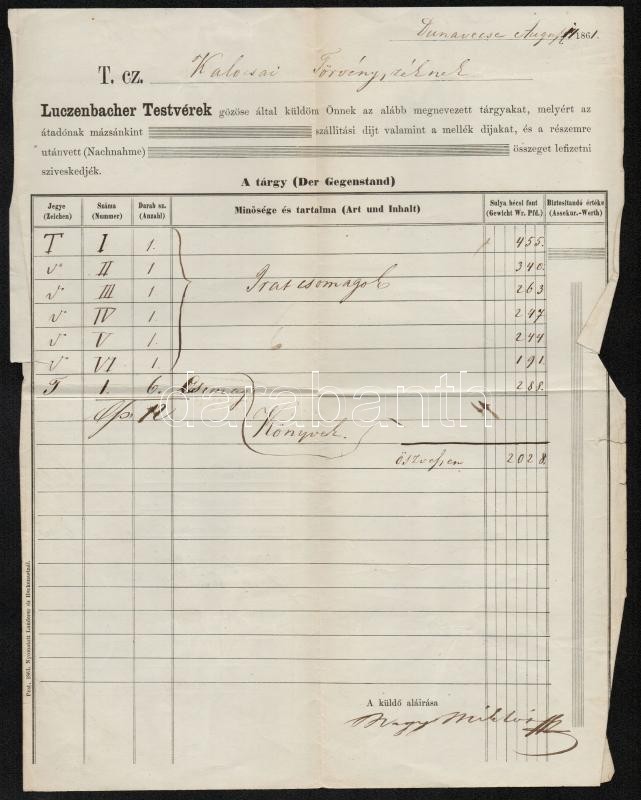 Dunavecse August 1861.
T. cz. Kalocsai Törvényszéknek
Luczenbacher Testvérek gőzöse által küldöm Önnek az alább megnevezett tárgyakat, melyért az
átadónak mázsánkint szállitási dijt valamint a mellék dijakat, és a részemre
utánvett (Nachnahme) összeget lefizetni
sziveskedjék.
A tárgy (Der Gegenstand)
Jegye (Zeichen) Száma (Nummer) Darab sz. (Anzahl) Minősége és tartalma (Art und Inhalt) Sulya bécsi font (Gewicht Wr. Pfd.) Biztositandó értéke (Assekur.-Werth)
T I 1. 455.
" II 1. 340.
" III 1. Irat csomagok 263
" IV 1. 247
" V 1. 244
" VI 1. 191
T 1. 6. Csomag 288.
12 Könyvek.
öszvessen 2028.
A küldő aláirása
Nagy Miklós
Pest, 1861. Nyomatott Landerer és Heckenastnál.
darabanth